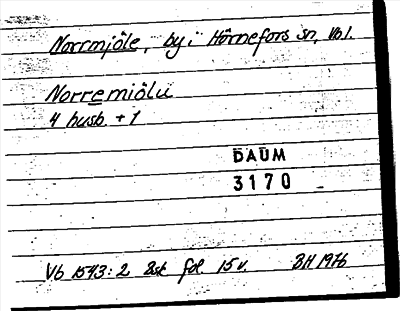 Norrmjöle, by i Hörnefors sn, Vb l.
Norremiölu
4 husb. + 1
DAUM
3170
Vb 1543:2 Bsk fol. 15 v. BH 1976